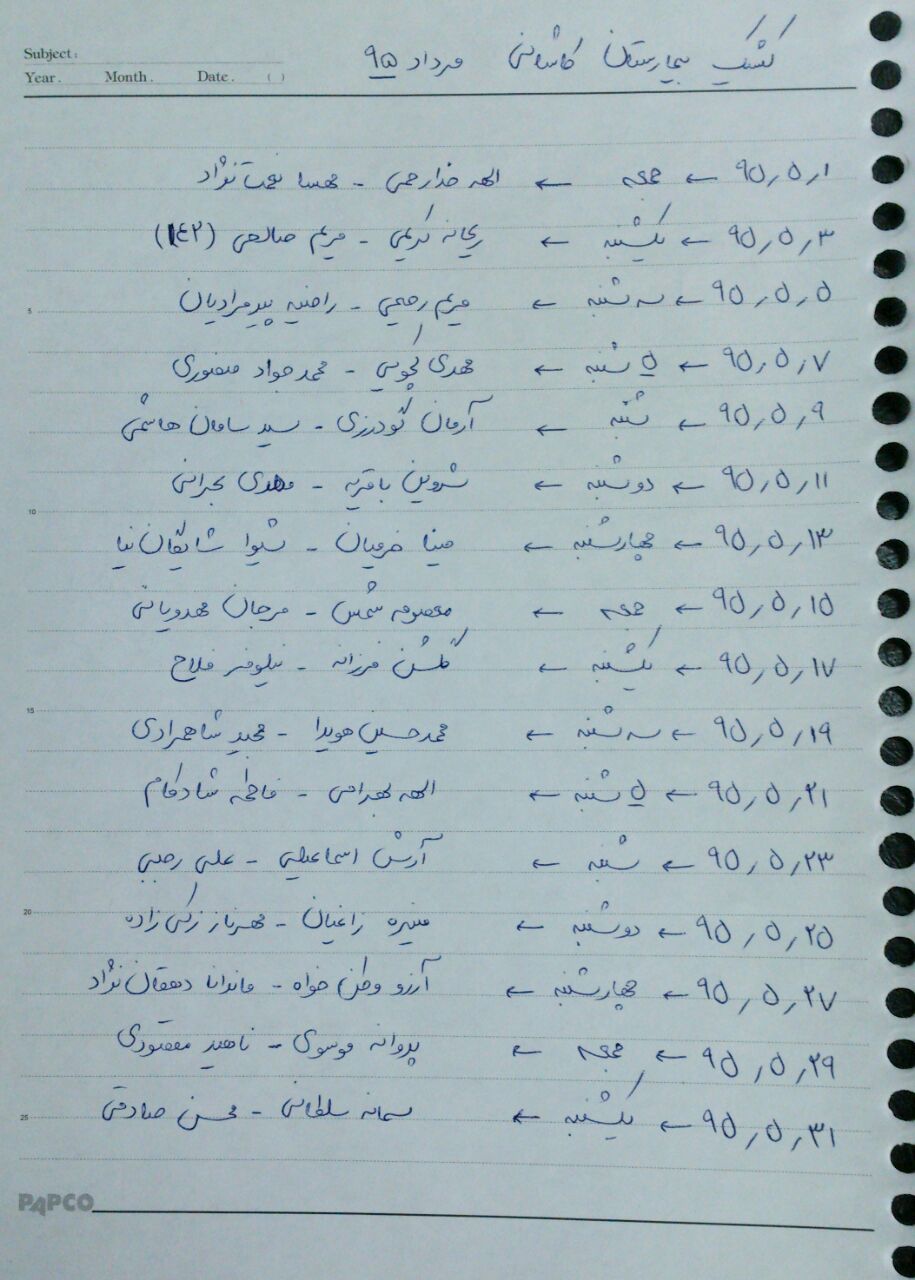 Subject:
Year. Month. Date. ( )
کشیک بیمارستان کاشانی مرداد ۹۵
۹۵٫۵٫۱ ← جمعه ← الهه خدارحمی - مهسا نعمت نژاد
۹۵٫۵٫۳ ← یکشنبه ← ریحانه کریمی - مریم صالحی (۱۴۲)
۹۵٫۵٫۵ ← سه شنبه ← مریم رحیمی - راضیه پیرمرادیان
۹۵٫۵٫۷ ← ۵ شنبه ← مهدی - محمد جواد منصوری
۹۵٫۵٫۹ ← شنبه ← آرمان گودرزی - سید سامان هاشمی
۹۵٫۵٫۱۱ ← دوشنبه ← شروین باقریه - مهدی بحرانی
۹۵٫۵٫۱۳ ← چهارشنبه ← مینا خرمیان - شیوا شایگان نیا
۹۵٫۵٫۱۵ ← جمعه ← معصومه شمس - مرجان مهدویانی
۹۵٫۵٫۱۷ ← یکشنبه ← گلشن فرزانه - نیلوفر فلاح
۹۵٫۵٫۱۹ ← سه شنبه ← محمد حسین هویدا - مجید شاهمرادی
۹۵٫۵٫۲۱ ← ۵ شنبه ← الهه بهرامی - فاطمه شادکام
۹۵٫۵٫۲۳ ← شنبه ← آرش اسماعیلی - علی رجبی
۹۵٫۵٫۲۵ ← دوشنبه ← منیره زاغیان - مهرناز زرکی زاده
۹۵٫۵٫۲۷ ← چهارشنبه ← آرزو وطن خواه - ماندانا دهقان نژاد
۹۵٫۵٫۲۹ ← جمعه ← پروانه موسوی - ناهید مقتدری
۹۵٫۵٫۳۱ ← یکشنبه ← سمانه سلطانی - محسن صادقی
PAPCO